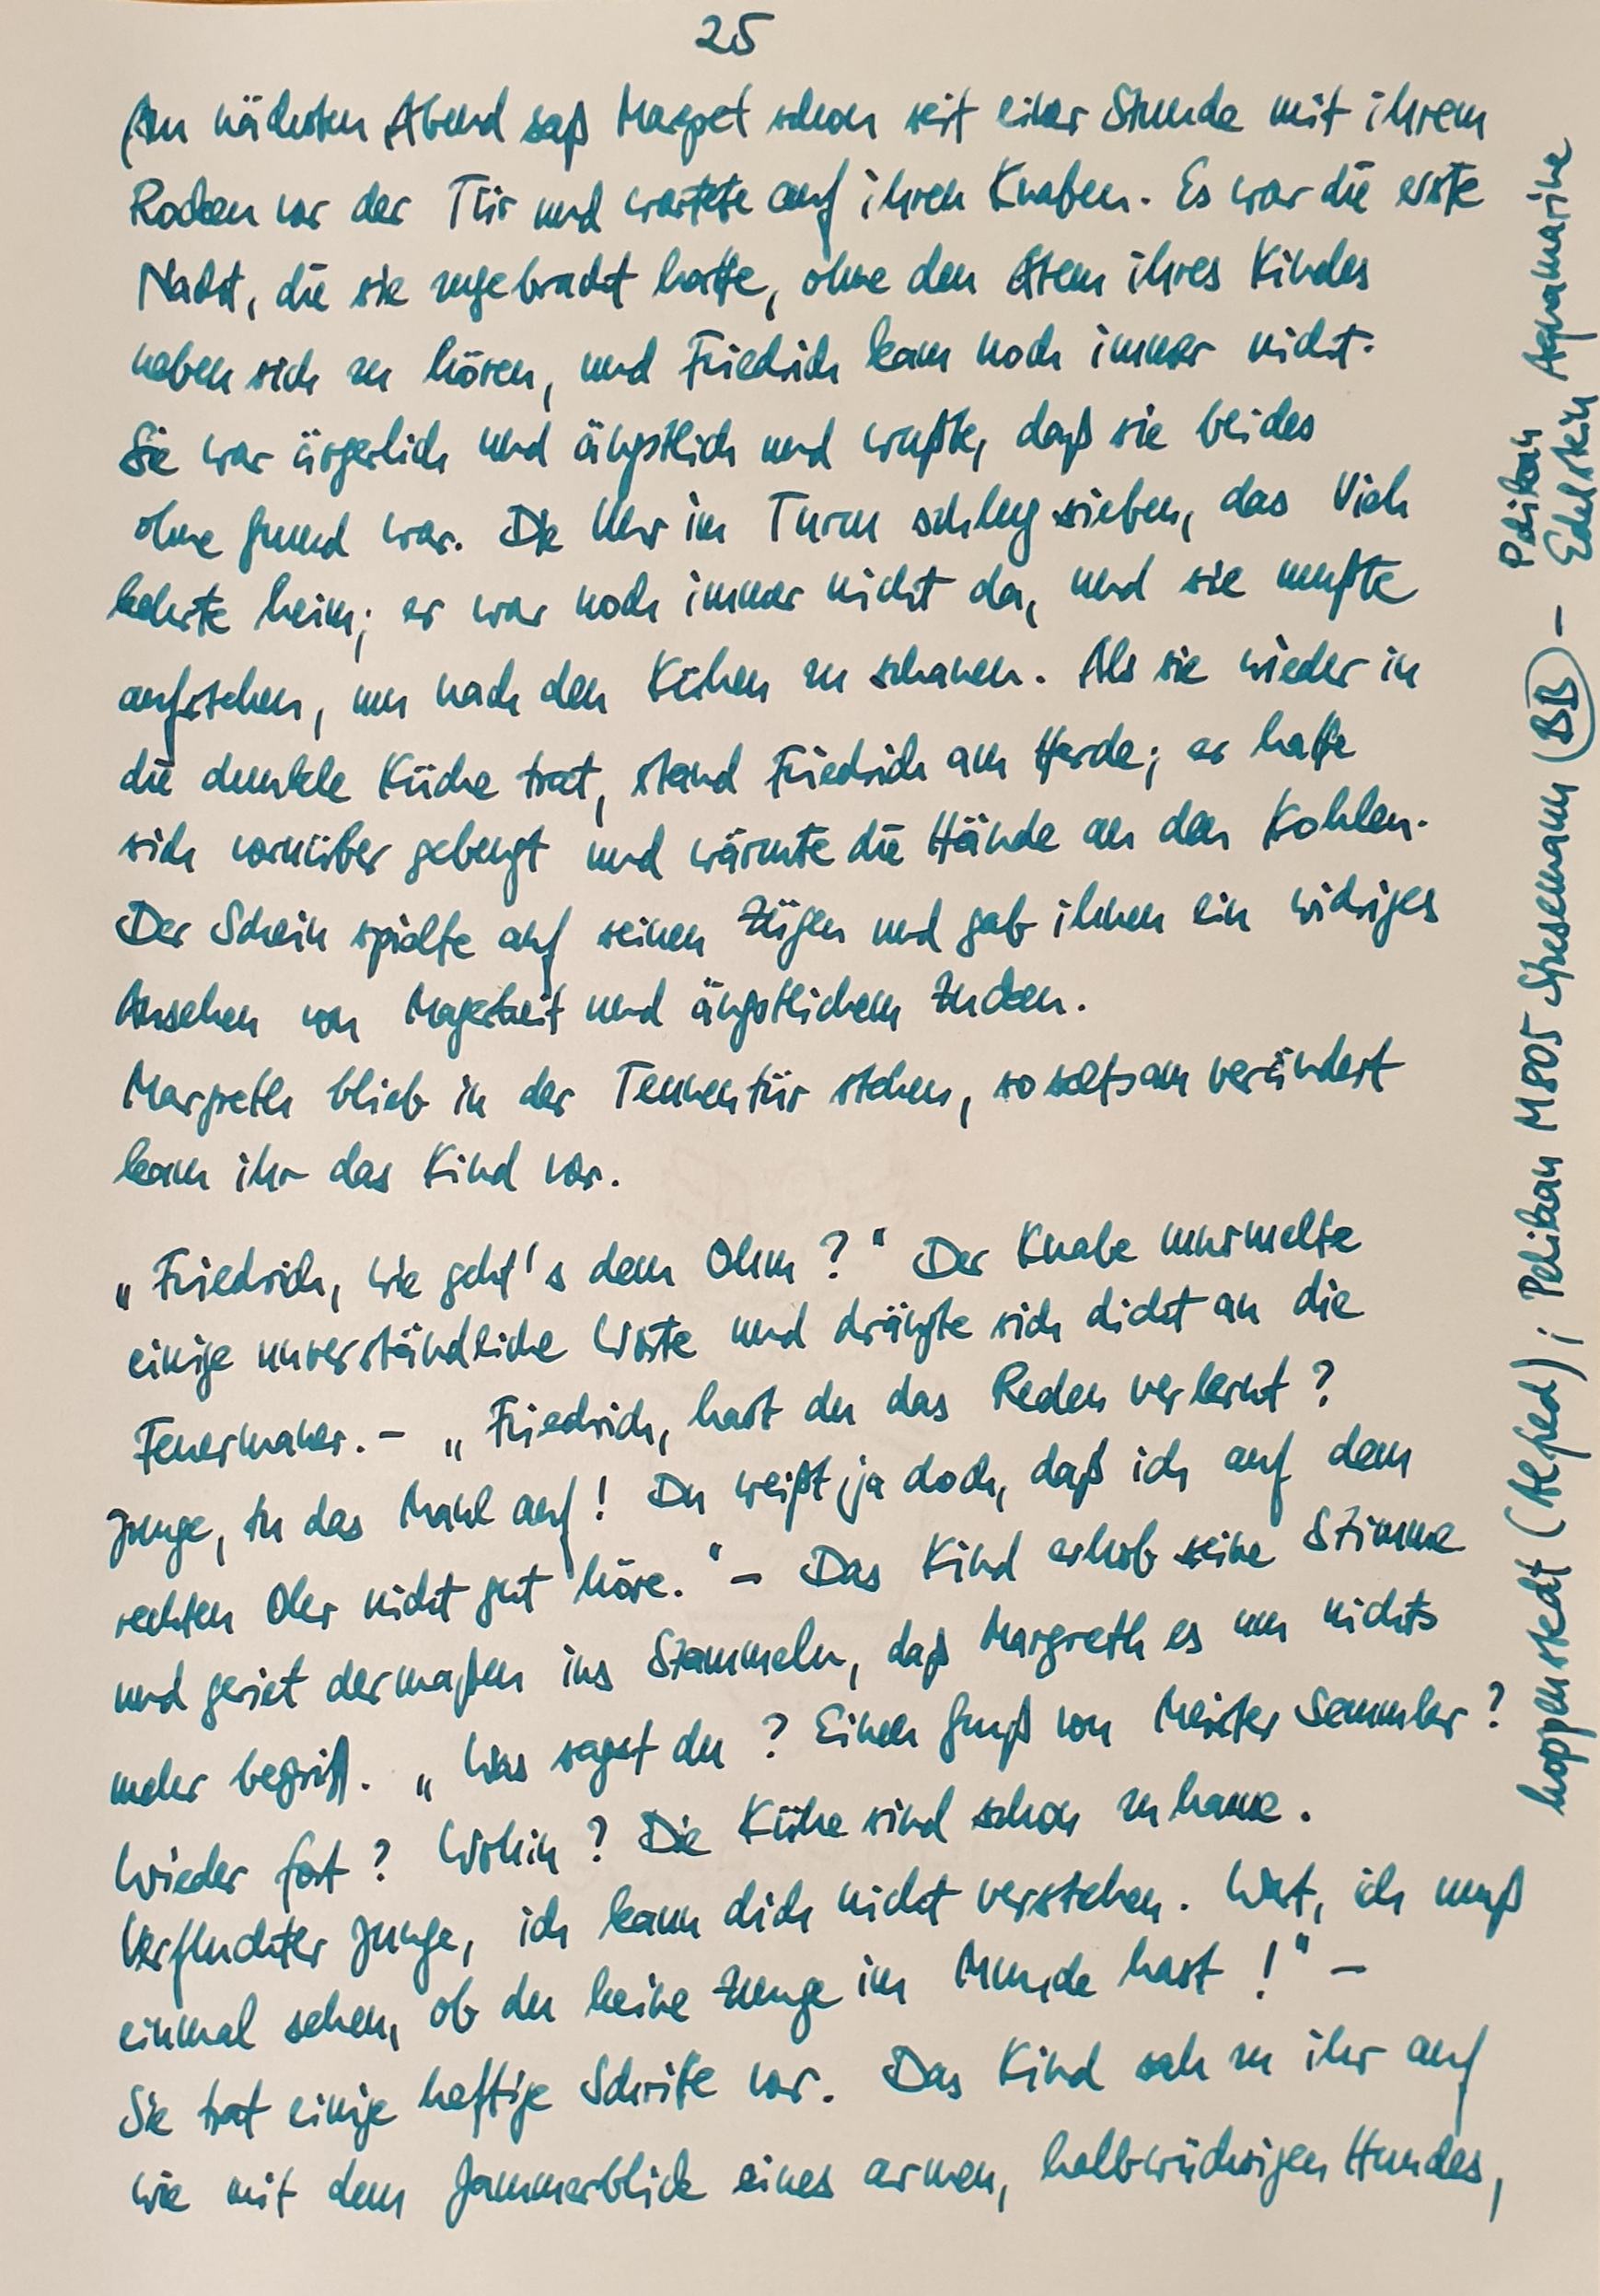 25
Am nächsten Abend saß Margret schon seit einer Stunde mit ihrem
Rocken vor der Tür und wartete auf ihren Knaben. Es war die erste
Nacht, die sie zugebracht hatte, ohne den Atem ihres Kindes
neben sich zu hören, und Friedrich kam noch immer nicht.
Sie war ärgerlich und ängstlich und wußte, daß sie beides
ohne Grund war. Die Uhr im Turm schlug sieben, das Vieh
kehrte heim; er war noch immer nicht da, und sie mußte
aufstehen, um nach den Kühen zu schauen. Als sie wieder in
die dunkle Küche trat, stand Friedrich am Herde; er hatte
sich vornüber gebeugt und wärmte die Hände an den Kohlen.
Der Schein spielte auf seinen Zügen und gab ihnen ein widriges
Ansehen von Magerkeit und ängstlichem Zucken.
Margreth blieb in der Tennentür stehen, so seltsam verändert
kam ihr das Kind vor.
„Friedrich, wie geht's dem Ohm?" Der Knabe murmelte
einige unverständliche Worte und drängte sich dicht an die
Feuermauer. – „Friedrich, hast du das Reden verlernt?
Junge, tu das Maul auf! Du weißt ja doch, daß ich auf dem
rechten Ohr nicht gut höre." – Das Kind erhob seine Stimme
und geriet dermaßen ins Stammeln, daß Margreth es um nichts
mehr begriff. „Was sagst du? Einen Gruß von Meister Semmler?
Wieder fort? Wohin? Die Kühe sind schon zu hause.
Verfluchter Junge, ich kann dich nicht verstehen. Wart, ich muß
einmal sehen, ob du keine Zunge im Munde hast!" –
Sie trat einige heftige Schritte vor. Das Kind sah zu ihr auf
wie mit dem Jammerblick eines armen, halbwüchsigen Hundes,
hoppenstedt (Alfred); Pelikan M805 Stresemann (BB) – Pelikan
Edelstein Aquamarine